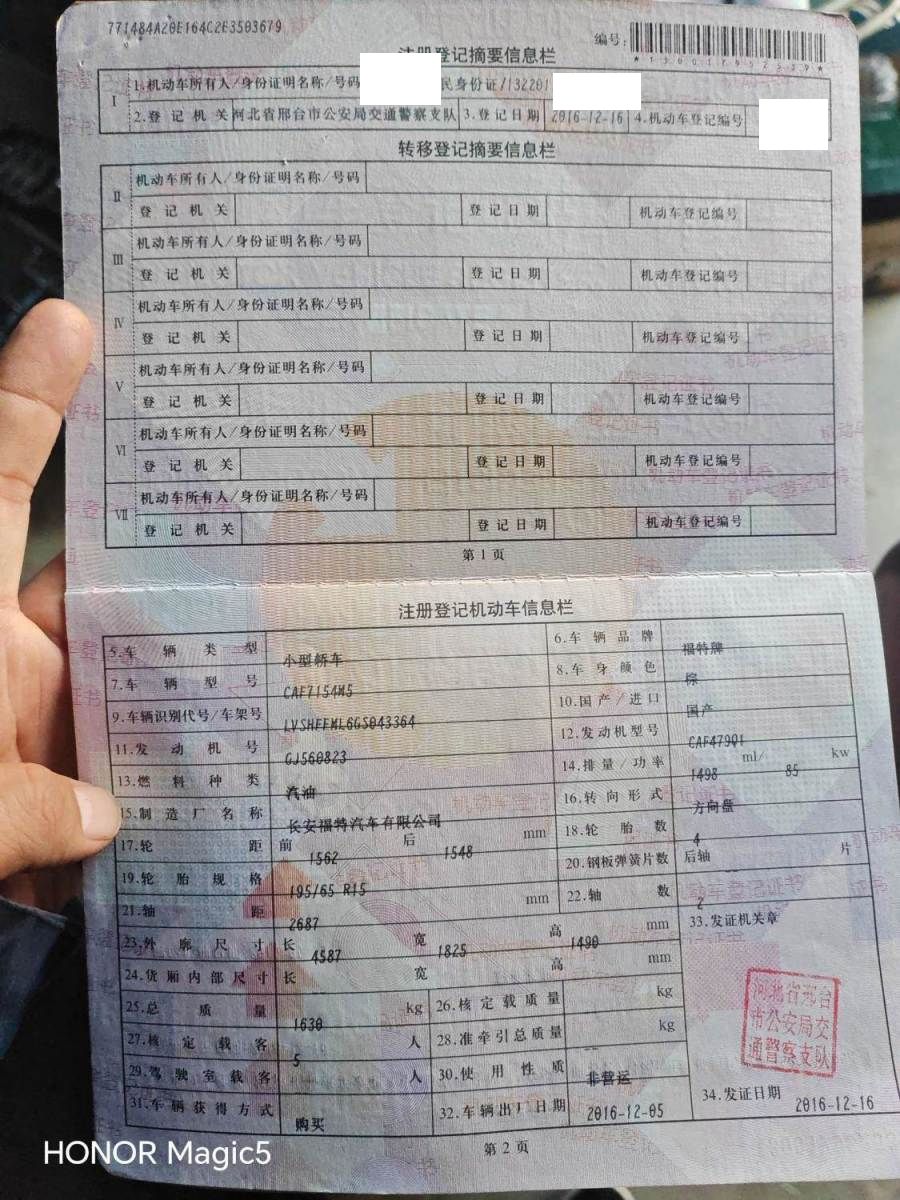 771484A20E164C2E3503679
注册登记摘要信息栏 编号:
I 1.机动车所有人/身份证明名称/号码 民身份证/132201
2.登记机关 河北省邢台市公安局交通警察支队 3.登记日期 2016-12-16 4.机动车登记编号
转移登记摘要信息栏
II 机动车所有人/身份证明名称/号码
登记机关 登记日期 机动车登记编号
III 机动车所有人/身份证明名称/号码
登记机关 登记日期 机动车登记编号
IV 机动车所有人/身份证明名称/号码
登记机关 登记日期 机动车登记编号
V 机动车所有人/身份证明名称/号码
登记机关 登记日期 机动车登记编号
VI 机动车所有人/身份证明名称/号码
登记机关 登记日期 机动车登记编号
VII 机动车所有人/身份证明名称/号码
登记机关 登记日期 机动车登记编号
第1页
注册登记机动车信息栏
5.车辆类型 小型轿车 6.车辆品牌 福特牌
7.车辆型号 CAF7154M5 8.车身颜色 棕
9.车辆识别代号/车架号 LVSHFFML6GS043364 10.国产/进口 国产
11.发动机号 GJ560823 12.发动机型号 CAF479Q1
13.燃料种类 汽油 14.排量/功率 1498 ml/ 85 kw
15.制造厂名称 长安福特汽车有限公司 16.转向形式 方向盘
17.轮距 前 1562 后 1548 mm 18.轮胎数 4
19.轮胎规格 195/65 R15 20.钢板弹簧片数 后轴 片
21.轴距 2687 mm 22.轴数 2
23.外廓尺寸 长 4587 宽 1825 高 1490 mm 33.发证机关章
24.货厢内部尺寸 长 宽 高 mm
25.总质量 1630 kg 26.核定载质量 kg
27.核定载客 5 人 28.准牵引总质量 -- kg
29.驾驶室载客 人 30.使用性质 非营运
31.车辆获得方式 购买 32.车辆出厂日期 2016-12-05 34.发证日期 2016-12-16
河北省邢台
市公安局交
通警察支队
第2页
HONOR Magic5